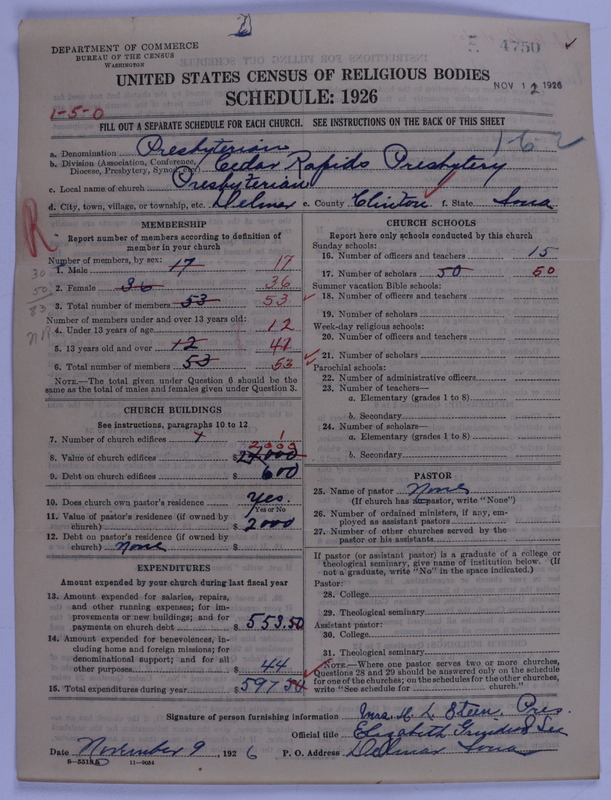 DEPARTMENT OF COMMERCE
BUREAU OF THE CENSUS
WASHINGTON
4750
UNITED STATES CENSUS OF RELIGIOUS BODIES
NOV 12 1926
SCHEDULE: 1926
1-5-0
FILL OUT A SEPARATE SCHEDULE FOR EACH CHURCH. SEE INSTRUCTIONS ON THE BACK OF THIS SHEET
162
a. Denomination Presbyterian
b. Division (Association, Conference, Diocese, Presbytery, Synod, etc.) Cedar Rapids Presbytery
c. Local name of church Presbyterian
d. City, town, village, or township, etc. Delmar e. County Clinton f. State Iowa
R
MEMBERSHIP
Report number of members according to definition of
member in your church
Number of members, by sex:
1. Male 17 17
2. Female 36 36
3. Total number of members 53 53
30
50
83
Number of members under and over 13 years old:
4. Under 13 years of age 12
5. 13 years old and over 12 41
6. Total number of members 53 53
NOTE.—The total given under Question 6 should be the
same as the total of males and females given under Question 3.
CHURCH BUILDINGS
See instructions, paragraphs 10 to 12
7. Number of church edifices 1
8. Value of church edifices $ 2000
9. Debt on church edifices $ 600
10. Does church own pastor's residence Yes.
Yes or No
11. Value of pastor's residence (if owned by
church) $ 2000
12. Debt on pastor's residence (if owned by
church) None $
EXPENDITURES
Amount expended by your church during last fiscal year
13. Amount expended for salaries, repairs,
and other running expenses; for im-
provements or new buildings; and for
payments on church debt $ 553.50
14. Amount expended for benevolences, in-
cluding home and foreign missions; for
denominational support; and for all
other purposes $ 44
15. Total expenditures during year $ 597
CHURCH SCHOOLS
Report here only schools conducted by this church
Sunday schools:
16. Number of officers and teachers 15
17. Number of scholars 50 50
Summer vacation Bible schools:
18. Number of officers and teachers
19. Number of scholars
Week-day religious schools:
20. Number of officers and teachers
21. Number of scholars
Parochial schools:
22. Number of administrative officers
23. Number of teachers—
a. Elementary (grades 1 to 8)
b. Secondary
24. Number of scholars—
a. Elementary (grades 1 to 8)
b. Secondary
PASTOR
25. Name of pastor None
(If church has no pastor, write "None")
26. Number of ordained ministers, if any, em-
ployed as assistant pastors
27. Number of other churches served by the
pastor or his assistants
If pastor (or assistant pastor) is a graduate of a college or
theological seminary, give name of institution below. (If
not a graduate, write "No" in the space indicated.)
Pastor:
28. College
29. Theological seminary
Assistant pastor:
30. College
31. Theological seminary
NOTE.—Where one pastor serves two or more churches,
Questions 28 and 29 should be answered only on the schedule
for one of the churches; on the schedules for the other churches,
write "See schedule for church."
Signature of person furnishing information Mrs. H. L. Steen, Pres.
Official title Elizabeth Sec
Date November 9, 1926 P. O. Address Delmar Iowa
11—9054